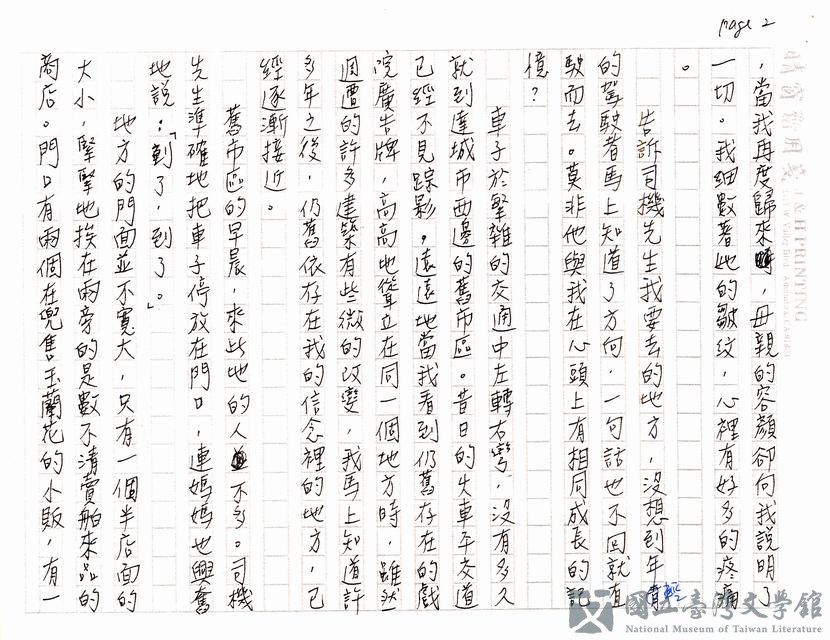 page 2
，當我再度歸來時，母親的容顏卻向我說明了
一切。我細數著她的皺紋，心裡有好多的疼痛
。
告訴司機先生我要去的地方，沒想到年輕
的駕駛者馬上知道了方向，一句話也不回就直
駛而去。莫非他與我在心頭上有相同成長的記
憶？
車子於擊雜的交通中左轉右彎，沒有多久
就到達城市西邊的舊市區。昔日的火車平交道
已經不見踪影。遠遠地當我看到仍舊存在的戲
院廣告牌，高高地聳立在同一個地方時，雖然
週遭的許多建築有些微的改變，我馬上知道許
多年之後，仍舊依存在我的信念裡的地方，已
經逐漸接近。
舊市區的早晨，來此地的人不多。司機
先生準確地把車子停放在門口，連媽媽也興奮
地說：「到了，到了。」
地方的門面並不寬大，只有一個半店面的
大小，緊緊地挨在兩旁的是數不清賣舶來品的
商店。門口有兩個在兜售玉蘭花的小販，有一
J&H PRINTING
國立臺灣文學館
National Museum of Taiwan Literature